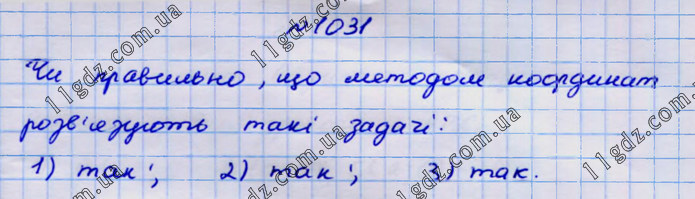 №1031
Чи правильно, що методом координат
розв'язують такі задачі:
1) так; 2) так; 3) так.
11gdz.com.ua
11gdz.com.ua
11gdz.com.ua
11gdz.com.ua
11gdz.com.ua
11gdz.com.ua